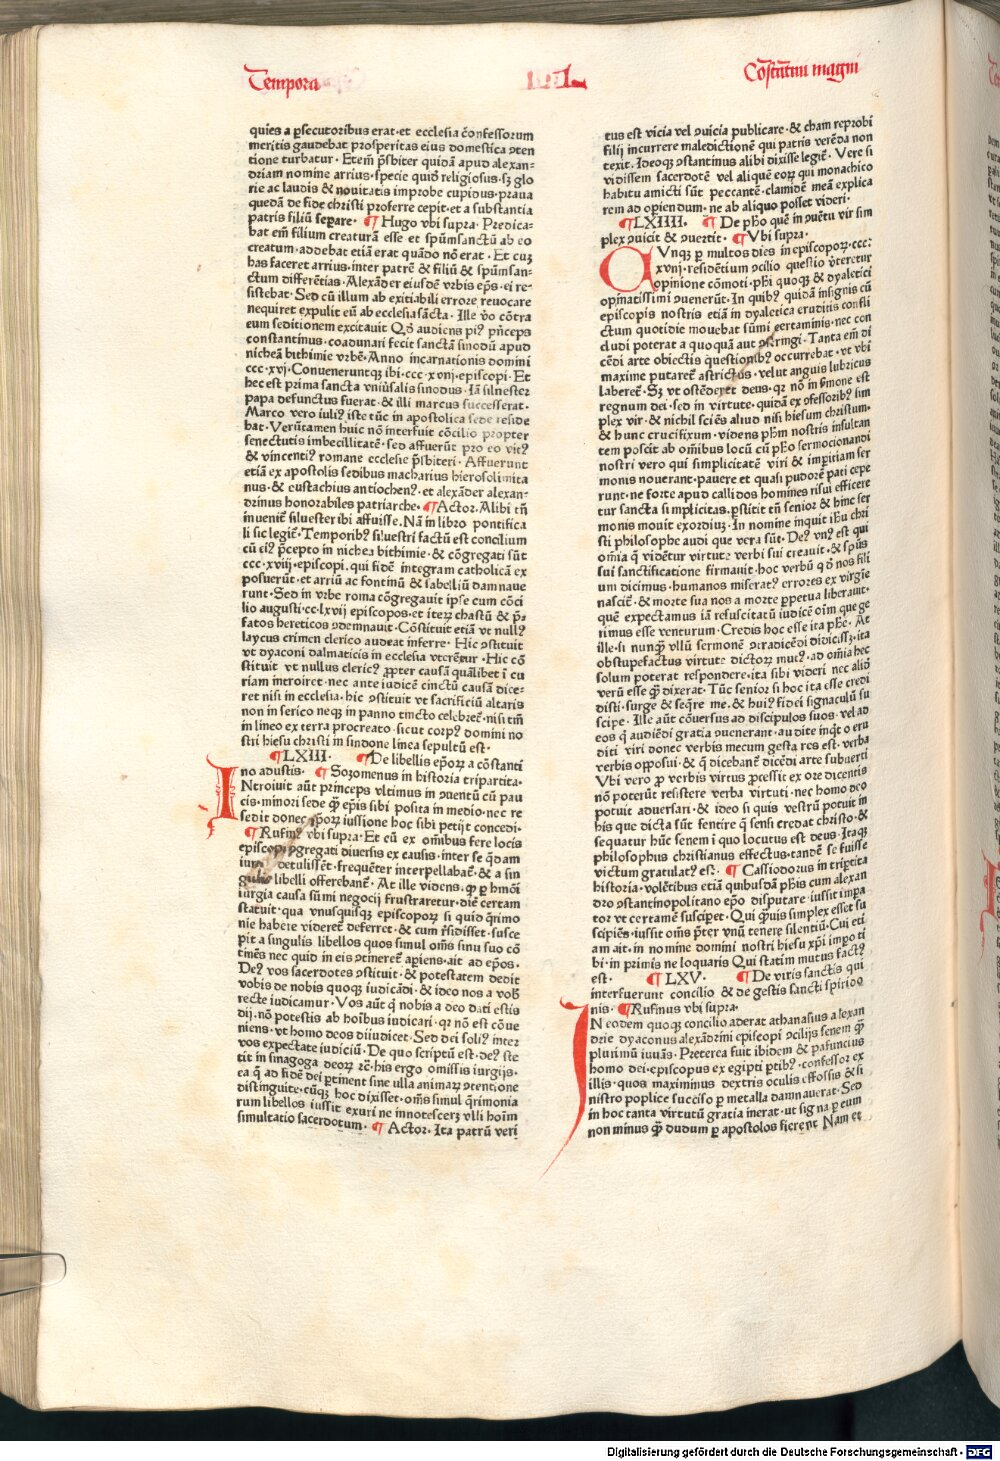 Tempora
Costātini magni
quies a ꝑsecutoribus erat·et ecclesia cōfessorum
meritis gaudebat prosperitas eius domestica ꝯten
tione turbatur· Etem̄ p̄sbiter quidā apud alexan⸗
driam nomine arrius·specie quidē religiosus·sꝫ glo
rie ac laudis & nouitatis improbe cupidus·praua
quedā de fide christi proferre cepit·et a substantia
patris filiū separe· ¶ Hugo vbi supra· Predica⸗
bat em̄ filium creaturā esse et spūmsanctū ab eo
creatum·addebat etiā erat quādo nō erat· Et cuꝫ
has faceret arrius·inter patrē & filiū & spūmsan⸗
ctum differētias·Alexāder eiusdē vrbis ep̄s·ei re⸗
sistebat·Sed cū illum ab exitiabili errore reuocare
nequiret expulit eū ab ecclesia sācta· Ille v̄o cōtra
eum seditionem excitauit Qd̄ audiens piꝰ p̄nceps
constantinus·coadunari fecit sanctā sinodū apud
niceā bithimie vrbē·Anno incarnationis domini
ccc·xvj·Conueneruntqꝫ ibi·ccc·xvnj·episcopi·Et
hec est prima sancta vniūsalis sinodus·Iā siluester
papa defunctus fuerat·& illi marcus successerat·
Marco vero iuliꝰ iste tūc in apostolica sede reside
bat·Verūtamen huic nō interfuit cōcilio propter
senectutis imbecillitatē·sed affuerūt pro eo vitꝰ
& vincentiꝰ romane ecclesie p̄sbiteri·Affuerunt
etiā ex apostolis sedibus macharius hierosolimita
nus·& eustachius antiochenꝰ·et alexāder alexan⸗
drinus honorabiles patriarche·¶Actor·Alibi tn̄
inuenit̄ siluester ibi affuisse·Nā in libro pontifica
li sic legit̄·Temporibꝰ siluestri factū est concilium
cū eiꝰ p̄cepto in nichea bithimie·& cōgregati sūt
ccc·xviij·episcopi·qui fidē integram catholicā ex
posuerūt·et arriū ac fontinū & sabelliū damnaue
runt·Sed in vrbe roma cōgregauit ipse cum cōci
lio augusti·cc·lxvij episcopos·et iterꝫ chastū & p̄⸗
fatos hereticos ꝯdemnauit·Cōstituit etiā vt nullꝰ
laycus crimen clerico audeat inferre· Hic ꝯstituit
vt dyaconi dalmaticis in ecclesia vterētur·Hic cō
stituit vt nullus clericꝰ ꝓpter causā quālibet ī cu
riam introiret·nec ante iudicē cinctū causā dice⸗
ret nisi in ecclesia·hic ꝯstituit vt sacrificiū altaris
non in serico neqꝫ in panno tincto celebret̄·nisi tm̄
in lineo ex terra procreato·sicut corpꝰ domini no
stri hiesu christi in sindone linea sepultū est·
¶LXIII· ¶De libellis ep̄orꝫ a cōstanti
no adustis· ¶ Sozomenus in historia tripartita·
INtroiuit aūt princeps vltimus in ꝯuentū cū pau
cis·minori sede qꝫ ep̄is sibi posita in medio·nec re
sedit donec ep̄orꝫ iussione hoc sibi petijt concedi·
¶Rufinꝰ vbi supra·Et cū ex om̄ibus fere locis
episcopi ꝯgregati diuersis ex causis·inter se q̄dam
detulissēt·frequēter interpellabāt̄·& a sin
gulis libelli offerebant̄· At ille videns·qꝫ ꝑ hmōi
iurgia causa sūmi negocij frustraretur·diē certam
statuit·qua vnusquisqꝫ episcoporꝫ si quid q̄rimo
nie habere videret̄ deferret·& cum r̄sidisset·susce
pit a singulis libellos quos simul om̄s sinu suo cō
tinēs nec quid in eis ꝯtineret̄ apiens·ait ad ep̄os·
Deꝰ vos sacerdotes ꝯstituit·& potestatem dedit
vobis de nobis quoqꝫ iudicādi·& ideo nos a vob̄
recte iudicamur·Vos aūt q̄ nobis a deo dati estis
dij·nō potestis ab hoībus iudicari·qr nō est cōue
niens·vt homo deos dijudicet·Sed dei soliꝰ inter
vos expectate iudiciū·De quo scriptū est·deꝰ ste
tit in sinagoga deorꝫ rc̄·his ergo omissis iurgijs·
ea q̄ ad fidē dei ꝑtinent sine vlla animarꝫ ꝯtentione
distinguite·cūqꝫ hoc dixisset·om̄s simul q̄rimonia
rum libellos iussit exuri ne innotescerꝫ vlli hoīm
simultatio sacerdotum· ¶ Actor· Ita patrū veri
tus est vicia vel ꝯuicia publicare·& cham reprobi
filij incurrere maledictionē qui patris verēda non
texit·Ideoqꝫ ꝯstantinus alibi dixisse legit̄· Vere si
vidissem sacerdotē vel aliquē eorꝫ qui monachico
habitu amicti sūt peccantē·clamidē meā explica
rem ad oꝑiendum·ne ab aliquo posset videri·
¶LXIIII· ¶ De ph̄o quē in ꝯuētu vir sim
plex ꝯuicit & ꝯuertit· ¶Vbi supra·
CVnqꝫ ꝑ multos dies in episcoporꝫ·ccc:
xvnj·residētium ꝯcilio questio v̄teretur
opinione cōmoti·ph̄i quoqꝫ & dyaletici
opinatissimi ꝯuenerūt·In quibꝰ quidā insignis cū
episcopis nostris etiā in dyaletica eruditis confli
ctum quotidie mouebat sūmi certaminis·nec con
cludi poterat a quoquā aut ꝯstringi·Tanta em̄ di
cēdi arte obiectis questionibꝰ occurrebat·vt vbi
maxime putaret̄ astrictus·velut anguis lubricus
laberet̄·Sꝫ vt ostēderet deus·qr nō in ẜmone est
regnum dei·sed in virtute·quidā ex ꝯfessoribꝰ sim
plex vir·& nichil sciēs aliud nisi hiesum christum·
& hunc crucifixum·videns ph̄m nostris insultan
tem poscit ab om̄ibus locū cū ph̄o sermocionandi
nostri vero qui simplicitatē viri & imꝑitiam ser
monis nouerant·pauere et quasi pudorē pati cepe
runt·ne forte apud callidos homines risui efficere
tur sancta simplicitas·ꝑstitit tn̄ senior & hinc ser
monis mouit exordiuꝫ·In nomine inquit ih̄u chri
sti philosophe audi que vera sūt·Deꝰ vnꝰ est qui
om̄ia q̄ vidētur virtute verbi sui creauit·& sp̄us
sui sanctificatione firmauit·hoc verbū qd̄ nos fili
um dicimus·humanos miseratꝰ errores ex virgīe
nascit̄·& morte sua nos a morte ꝑpetua liberauit·
quē expectamus iā resuscitatū iudicē oīm que ge
rimus esse venturum·Credis hoc esse ita ph̄e·At
ille·si nunqꝫ vllū sermonē ꝯtradicēdi didicissꝫ·ita
obstupefactus virtute dictorꝫ mutꝰ·ad om̄ia hec
solum poterat respondere·ita sibi videri nec aliud
verū esse qꝫ dixerat·Tūc senior si hoc ita esse credi
disti·surge & seq̄re me·& huiꝰ fidei signaculū su
scipe· Ille aūt cōuersus ad discipulos suos·vel ad
eos q̄ audiēdi gratia ꝯuenerant·audite inqt̄ o eru
diti viri donec verbis mecum gesta res est·verba
verbis opposui·& q̄ dicebant̄ dicēdi arte subuerti
Vbi vero ꝓ verbis virtus ꝓcessit ex ore dicentis
nō poterūt resistere verba virtuti·nec homo deo
potuit aduersari·& ideo si quis vestrū potuit in
his que dicta sūt sentire q̄ sensi credat christo·&
sequatur hūc senem ī quo locutus est deus·Itaqꝫ
philosophus christianus effectus·tandē se fuisse
victum gratulatꝰ est· ¶ Cassiodorus in triꝑtita
historia·volētibus etiā quibusdā ph̄is cum alexan
dro ꝯstantinopolitano ep̄o disputare·iussit impa
tor vt certamē susciꝑet·Qui qꝫuis simplex esset su
scipiēs·iussit om̄s p̄ter vnū tenere silentiū·Cui eti
am ait·in nomine domini nostri hiesu xp̄i impo ti
bi·in primis ne loquaris Qui statim mutus factꝰ
est· ¶ LXV· ¶De viris sanctis qui
interfuerunt concilio & de gestis sancti spirido
nis·¶Rufinus vbi supra·
IN eodem quoqꝫ concilio aderat athanasius alexan
drie dyaconus alexādrini episcopi ꝯcilijs senem qꝫ
plurimū iuuās·Preterea fuit ibidem & pafuncius
homo dei·episcopus ex egipti ꝑtibꝰ·confessor ex
illis·quos maximinus dextris oculis effossis & si
nistro poplice succiso ꝑ metalla damnauerat·Sed
in hoc tanta virtutū gratia inerat·ut signa ꝑ eum
non minus qꝫ dudum ꝑ apostolos fierent Nam et
Digitalisierung gefördert durch die Deutsche Forschungsgemeinschaft - DFG